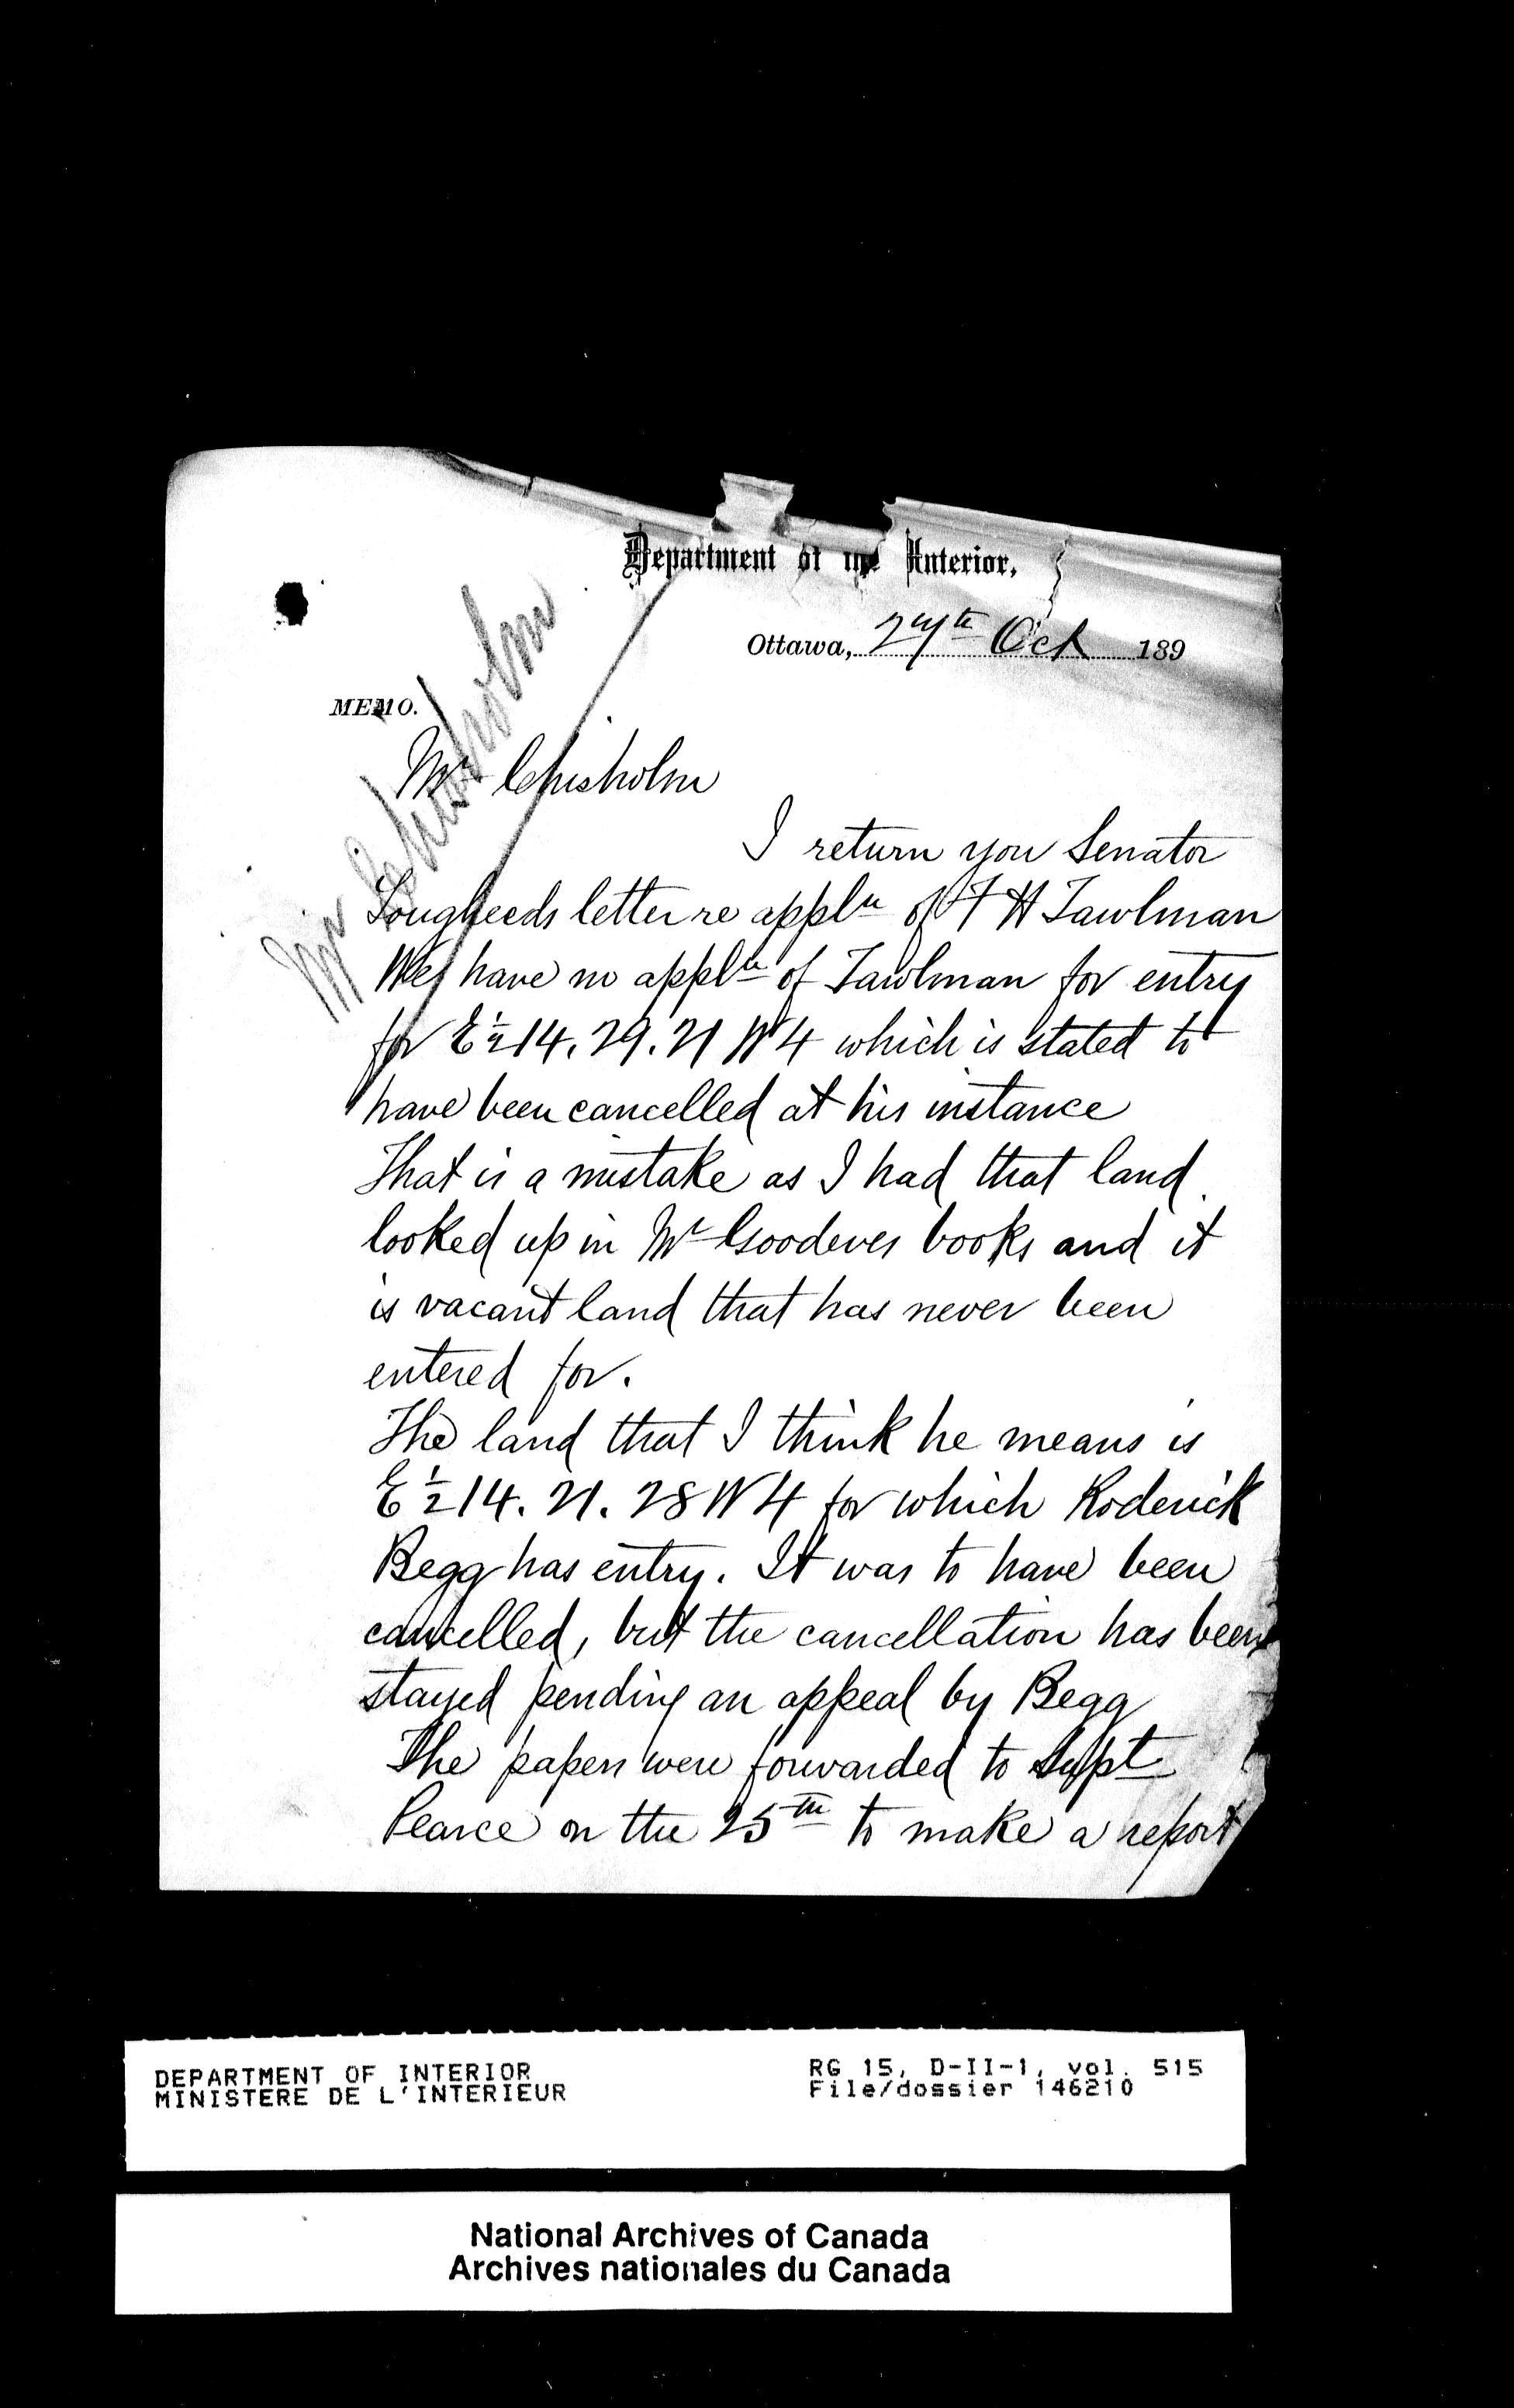 Department of the Interior,
Ottawa, 27th Oct 189
MEMO.
Mr Chisholm
Mr Chisholm
I return you Senator
Lougheeds letter re appln of F H Tawlman
We have no appln of Tawlman for entry
for E½ 14. 29. 21 W 4 which is stated to
have been cancelled at his instance
That is a mistake as I had that land
looked up in Mr Goodeves books and it
is vacant land that has never been
entered for.
The land that I think he means is
E½ 14. 21. 28 W 4 for which Roderick
Begg has entry. It was to have been
cancelled, but the cancellation has been
stayed pending an appeal by Begg
The papers were forwarded to Supt
Pearce on the 25th to make a report
DEPARTMENT OF INTERIOR
MINISTERE DE L'INTERIEUR
RG 15, D-II-1, vol. 515
File/dossier 146210
National Archives of Canada
Archives nationales du Canada